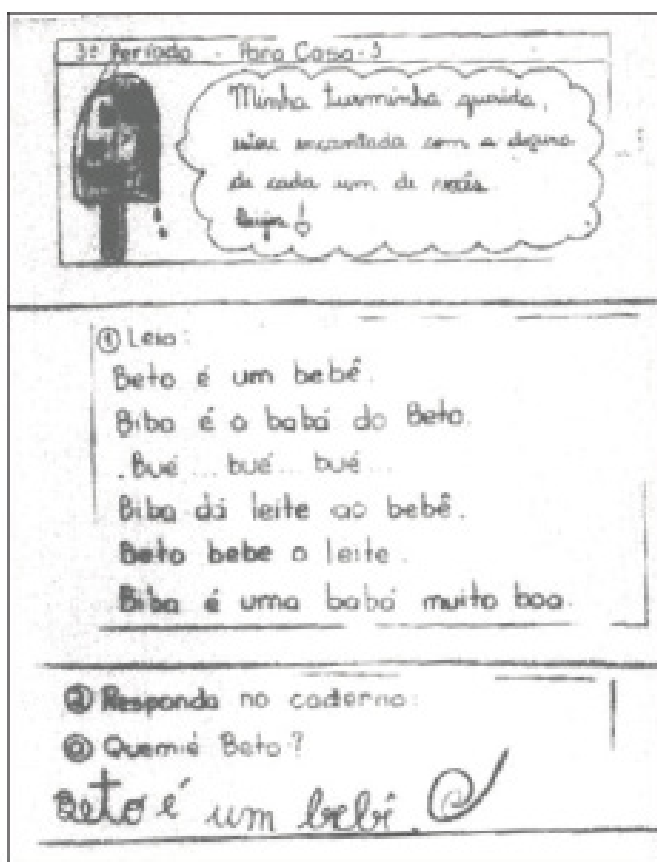 3º Período - Para Casa - 3
Minha turminha querida,
estou encantada com a doçura
de cada um de vocês.
Beijos!
① Leia:
Beto é um bebê.
Biba é a babá do Beto.
.Bué ... bué ... bué ...
Biba dá leite ao bebê.
Beto bebe o leite.
Biba é uma babá muito boa.
② Responda no caderno:
ⓐ Quem é Beto?
Beto é um bebê.